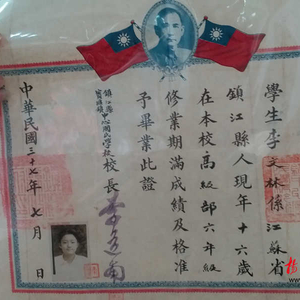 學生李文林係江蘇省
鎮江縣人現年十六歲
在本校高級部六年級
修業期滿成績及格准
予畢業此證
校長
中華民國三十七年七月 日